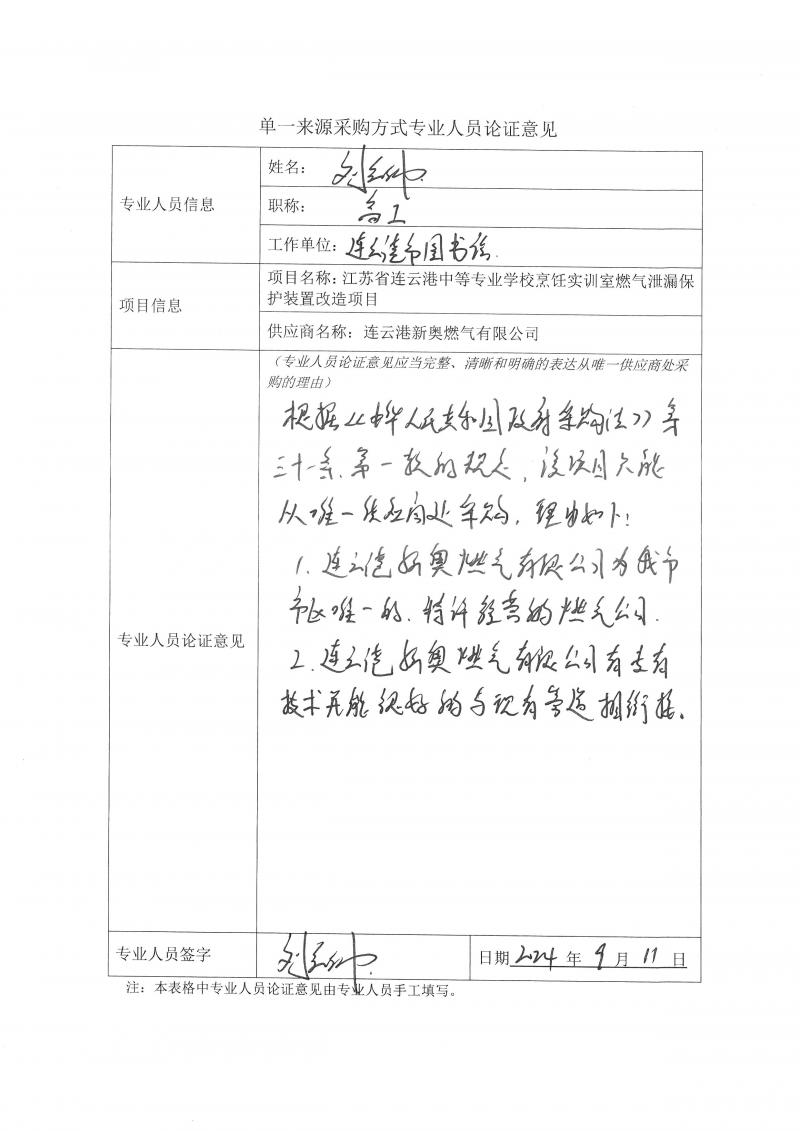 单一来源采购方式专业人员论证意见
专业人员信息
姓名：
职称：高工
工作单位：连云港市图书馆.
项目信息
项目名称：江苏省连云港中等专业学校烹饪实训室燃气泄漏保
护装置改造项目
供应商名称：连云港新奥燃气有限公司
专业人员论证意见
（专业人员论证意见应当完整、清晰和明确的表达从唯一供应商处采
购的理由）
根据《中华人民共和国政府采购法》第
三十一条、第一款的规定，该项目只能
从唯一供应商处采购，理由如下：
1. 连云港新奥燃气有限公司为我市
市区唯一的、特许经营的燃气公司.
2. 连云港新奥燃气有限公司有专有
技术并能很好的与现有管道相衔接。
专业人员签字
日期 2024 年 9 月 11 日
注：本表格中专业人员论证意见由专业人员手工填写。